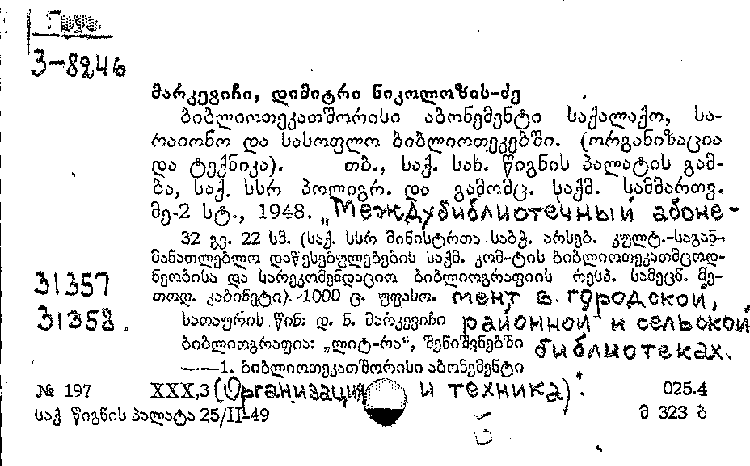 3-8246
მარკევიჩი, დიმიტრი ნიკოლოზის-ძე
ბიბლიოთეკათშორისი აბონემენტი საქალაქო, სა-
რაიონო და სასოფლო ბიბლიოთეკებში. (ორგანიზაცია
და ტექნიკა). თბ., საქ. სახ. წიგნის პალატის გამ-
ბა, საქ. სსრ პოლიგრ. და გამომც. საქმ. სამმართვ.
მე-2 სტ., 1948. „Междубиблиотечный абоне-
32 გვ. 22 სმ. (საქ. სსრ მინისტრთა საბჭ. არსებ. კულტ.-საგან-
მანათლებლო დაწესებულებების საქმ. კომ-ტის ბიბლიოთეკათმცოდ-
ნეობისა და სარეკომენდაციო ბიბლიოგრაფიის რესპ. სამეცნ. მე-
31357 თოდ. კაბინეტი). 1000 ც. უფასო. мент в городской,
31358. სათაურის წინ: დ. ნ. მარკევიჩი районной и сельской
ბიბლიოგრაფია: „ლიტ-რა“, შენიშვნებში библиотеках.
——1. ბიბლიოთეკათშორისი აბონემენტი
№ 197 XXX,3 (Организация и техника). 025.4
საქ წიგნის პალატა 25/II-49 მ 323 ბ